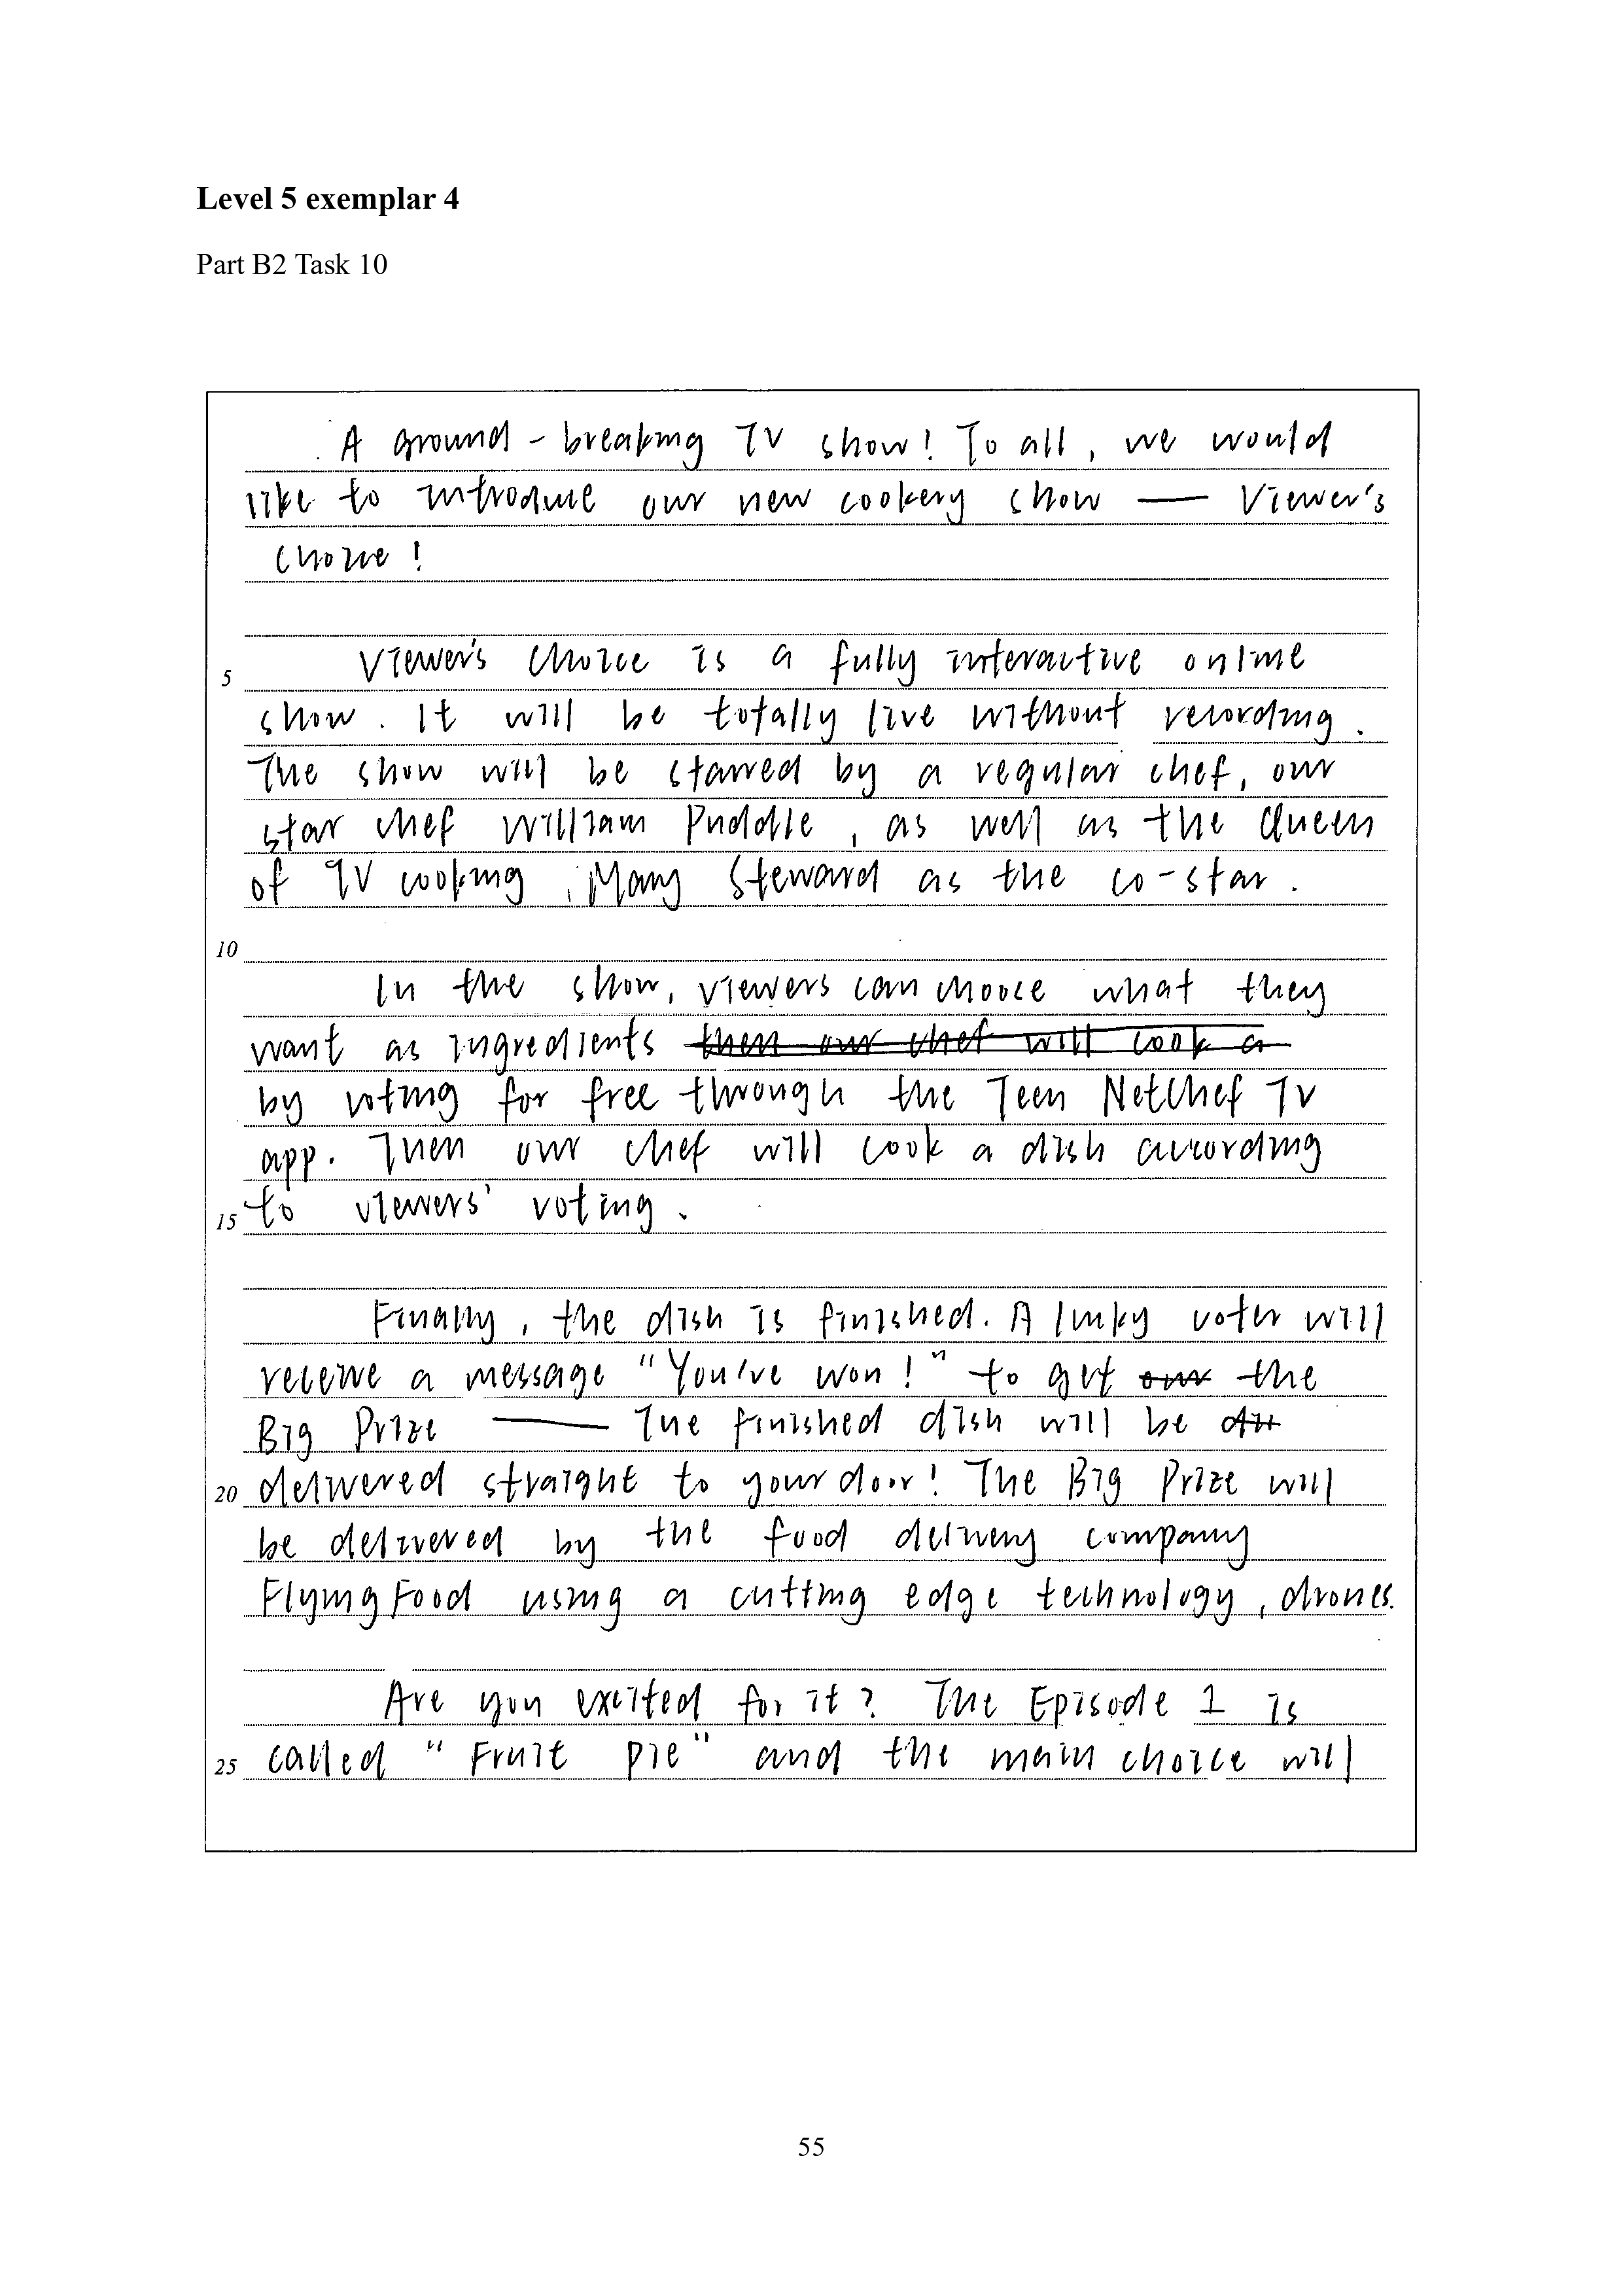 Level 5 exemplar 4
Part B2 Task 10
A ground-breaking TV show! To all, we would
like to introduce our new cookery show — Viewer's
Choice!
Viewer's Choice is a fully interactive online
5
show. It will be totally live without recording.
The show will be starred by a regular chef, our
star chef William Puddle, as well as the Queen
of TV cooking, Mary Steward as the co-star.
10
In the show, viewers can choose what they
want as ingredients then our chef will cook a
by voting for free through the Teen NetChef TV
app. Then our chef will cook a dish according
15 to viewers' voting.
Finally, the dish is finished. A lucky voter will
receive a message "You've won!" to get our the
Big Prize — The finished dish will be
20 delivered straight to your door! The Big Prize will
be delivered by the food delivery company
FlyingFood using a cutting edge technology, drones.
Are you excited for it? The Episode 1 is
25 called "Fruit Pie" and the main choice will
55